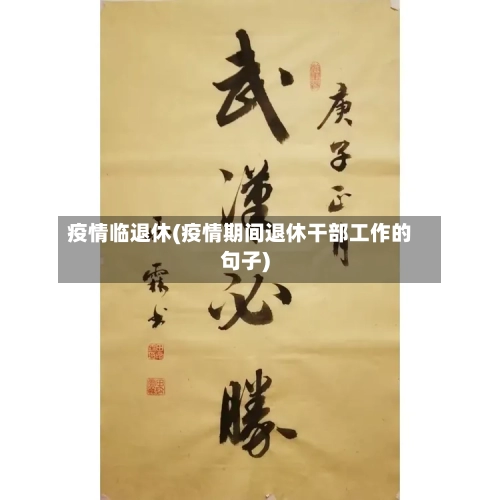 庚子正月
武漢必勝
霖书
疫情临退休(疫情期间退休干部工作的
句子)